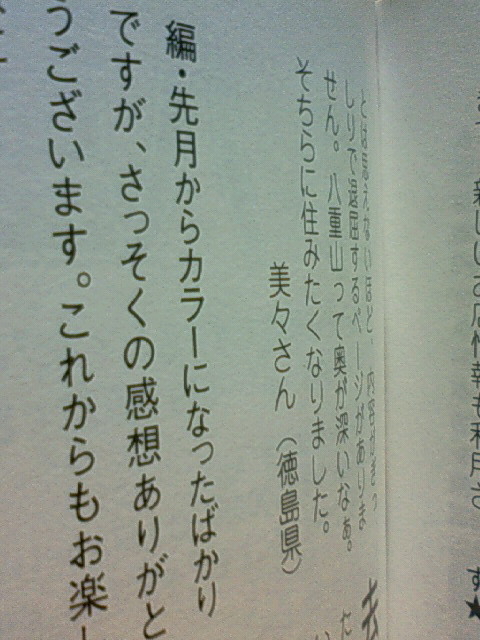 とは思えないほど、内容がぎっ
しりで退屈するページがありま
せん。八重山って奥が深いなぁ。
そちらに住みたくなりました。
美々さん（徳島県）
編・先月からカラーになったばかり
ですが、さっそくの感想ありがと
うございます。これからもお楽